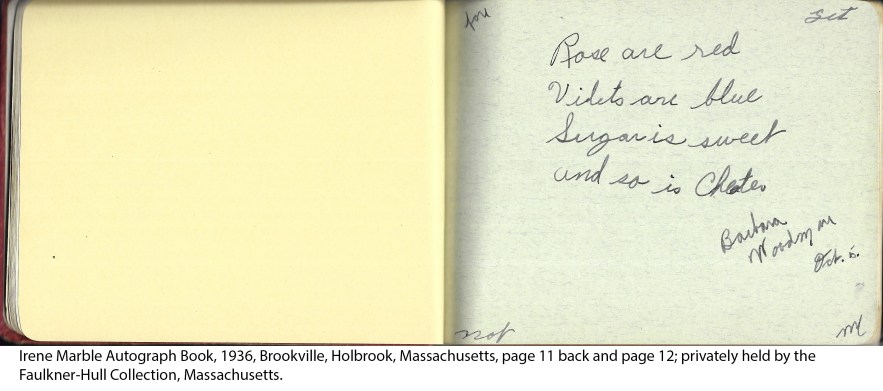 for
get
Rose are red
Vilets are blue
Surgar is sweet
and so is Chester
Barbara
Woodman
Oct. 6.
not
me
Irene Marble Autograph Book, 1936, Brookville, Holbrook, Massachusetts, page 11 back and page 12; privately held by the
Faulkner-Hull Collection, Massachusetts.